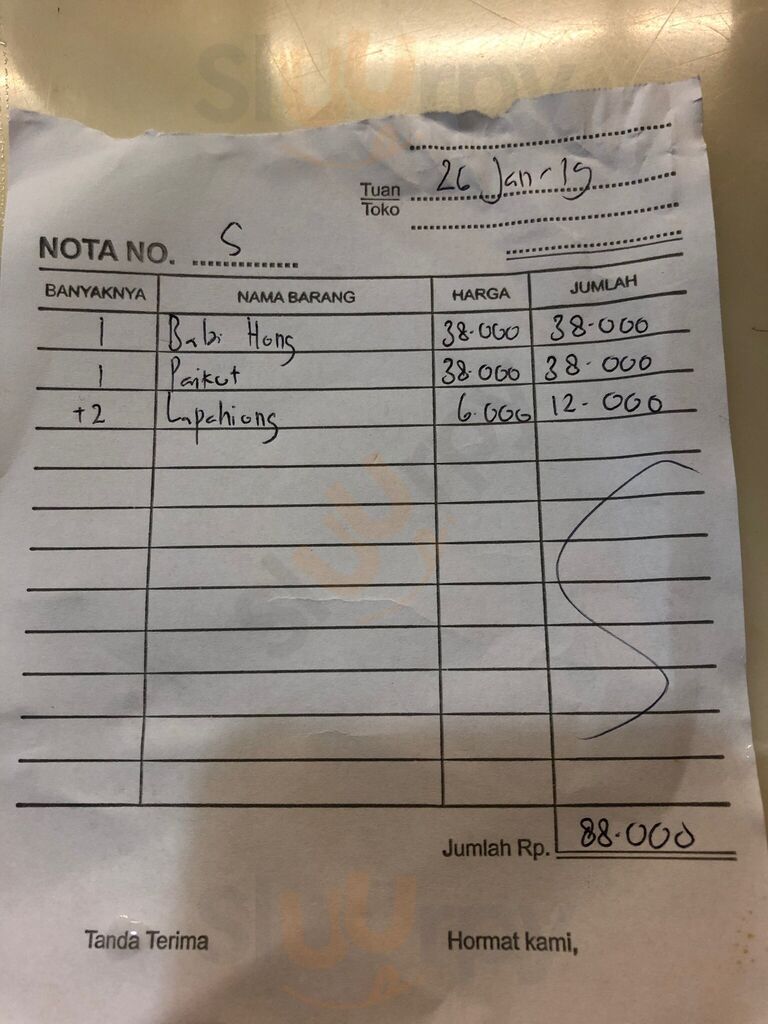 26 Jan-19
Tuan
Toko
NOTA NO. 5
BANYAKNYA NAMA BARANG HARGA JUMLAH
1 Babi Hong 38.000 38-000
1 Paikut 38.000 38-000
+2 Lapchiong 6.000 12-000
Jumlah Rp. 88.000
Tanda Terima Hormat kami,
sluurpy
sluurpy
sluurpy